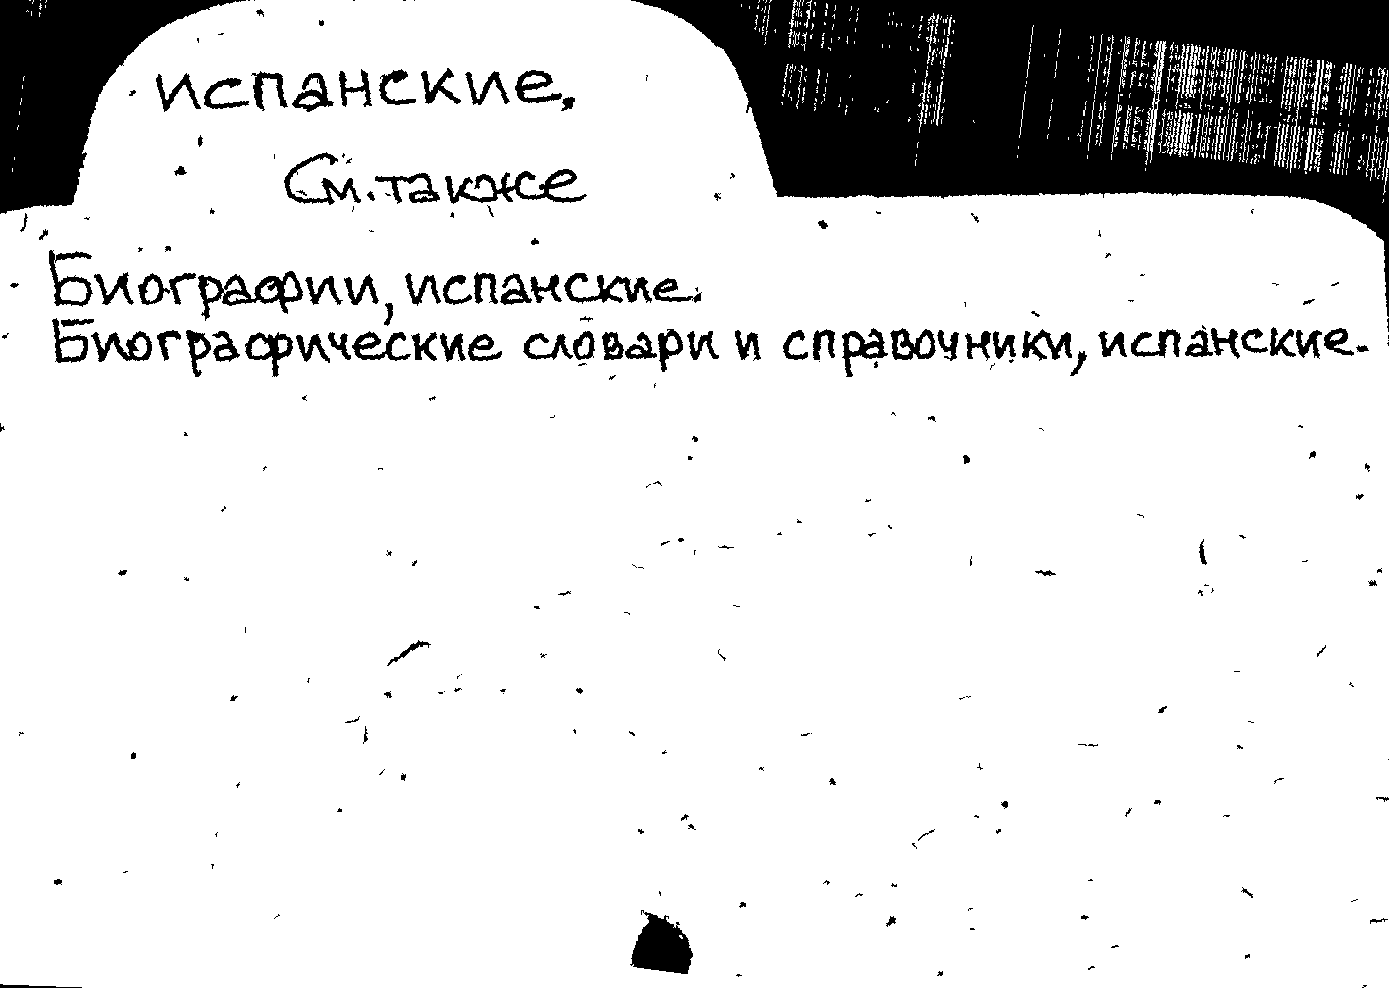 испанские.
См. также
Биографии, испанские.
Биографические словари и справочники, испанские.